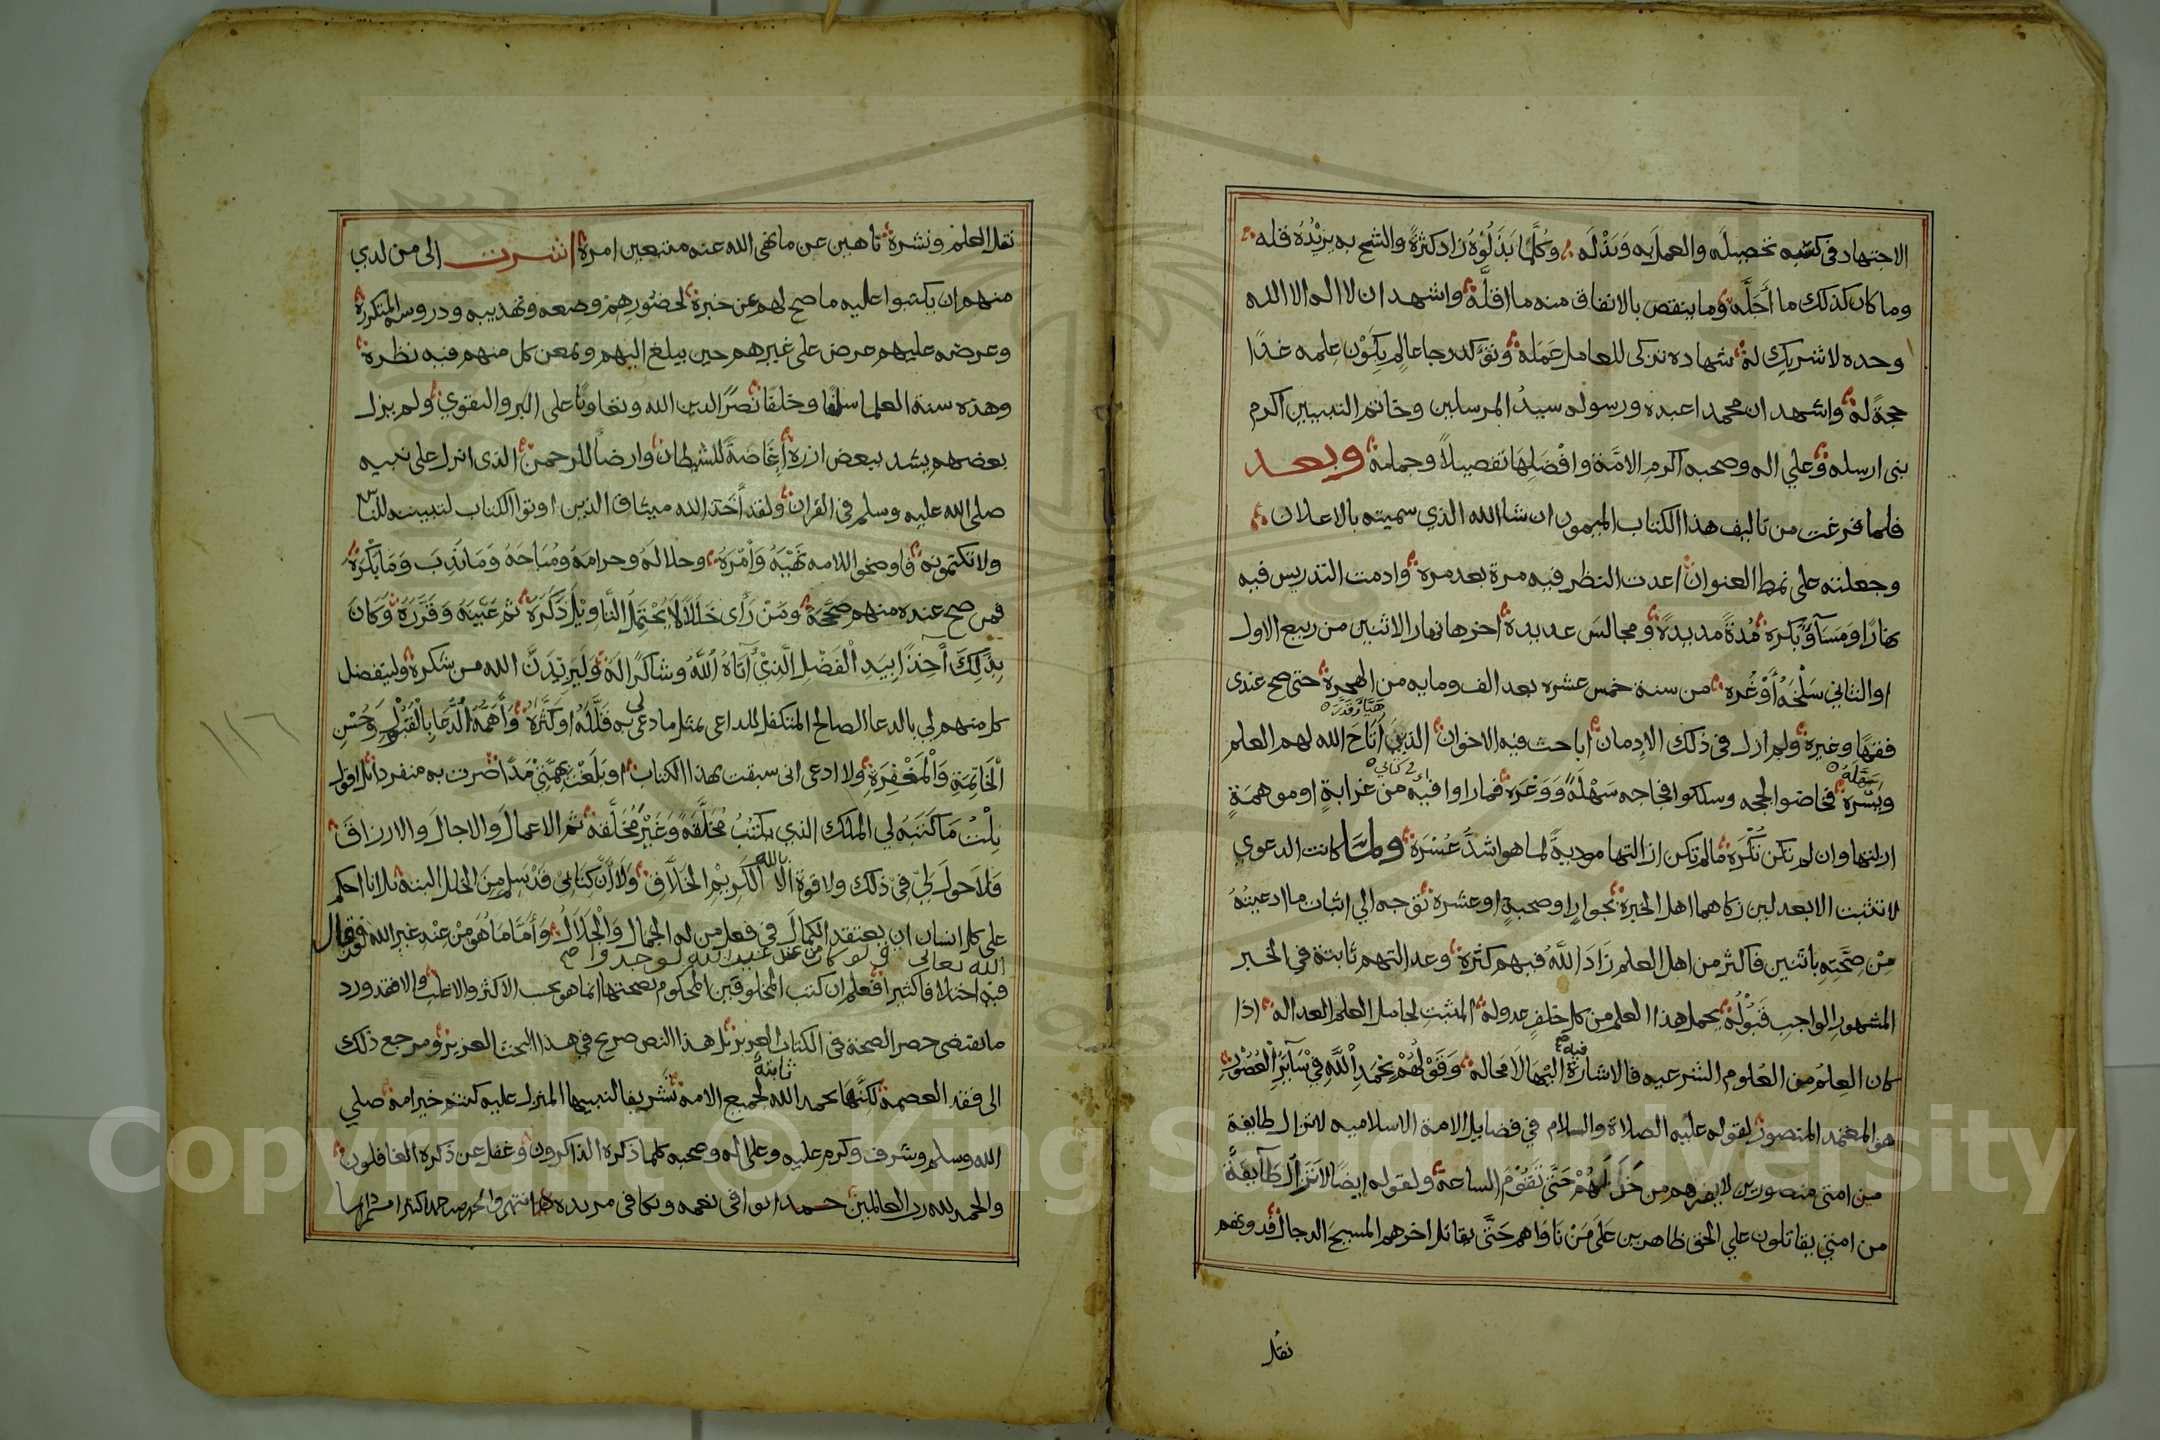 الاجتهاد في كتبه تحصيله والعمل به وبذله وكلما بذلوه زاد كثرة والشح به يزيده قله
وما كان كذلك ما أجله وما ينقص بالانفاق منه ما اقله واشهد ان لا اله الا الله
وحده لا شريك له شهادة تزكى للعامل عمله عالم يكون علمه غدا
حجة له واشهد ان محمدا عبده ورسوله سيد المرسلين وخاتم النبيين اكرم
نبى ارسله وعلي اله وصحبه اكرم الامة وافضلها تفصيلا وجمله وبعد
فلما فرغت من تاليف هذا الكتاب الميمون ان شا الله الذي سميته بالاعلان
وجعلته على نمط العنوان اعدت النظر فيه مرة بعد مره وادمت التدريس فيه
نهارا ومسآ وبكره مدة مديدة ومجالس عديدة اخرها نهار الاثنين من ربيع الاول
او الثاني سلخه أو غره من سنة خمس عشره بعد الف ومايه من الهجرة حتى صح عندى
فقها وغيره ولم ازل في ذلك الإدمان اباحث فيه الاخوان الذين أتاح الله لهم العلم
هيأ وقدر
ويشره فخاضوا لججه وسلكوا فجاجه سهلة ووعره فما راوا فيه من غرابة او موهمة
سهله
اي في كتابي
ازلتها وان لم تكن نكره ما لم تكن ازالتها مودية لما هو اشد عسره ولما كانت الدعوي
لا تثبت الا بعد لين زكاهما اهل الخيرة بجوار او صحبة او عشره توجه الي اثبات ما ادعيته
من صحته باثنين فاكثر من اهل العلم زاد الله فيهم كثره وعدالتهم ثابتة في الخبر
المشهور الواجب قبوله يحمل هذا العلم من كل خلف عدوله المثبت لحامل العلم العداله اذا
كان العلم من العلوم الشرعيه فالاشارة فيه اليها لا محاله وقولهم بحمد الله في سآئر العصور
هو المعتمد المنصور لقوله عليه الصلاة والسلام في فضايل الامة الاسلاميه لا تزال طايفة
من امتى منصورين لا يضرهم من خذلهم حتى تقوم الساعة ولقوله ايضا لا تزال طآيفة
من امتي يقاتلون علي الحق ظاهرين على من ناواهم حتى يقاتل اخرهم المسيح الدجال
نقل
نقل العلم ونشره ناهين عن ما نهى الله عنه متبعين امره اشرت الى من لدي
منهم ان يكتبوا عليه ما صح لهم عن خبرة لحضورهم وضعه وتهذيبه ودروسه المتكرره
وعرضه عليهم عرض على غيرهم حين يبلغ اليهم ويمعن كل منهم فيه نظره
وهذه سنة العلما سلفا وخلفا نصرا لدين الله وتعاونا على البر والتقوي ولم يزل
بعضهم يشد ببعض ازره إغاضة للشيطان وارضا للرحمن الذى انزل على نبيه
صلى الله عليه وسلم في القران ولقد أخذ الله ميثاق الذين اوتوا الكتاب لتبيننه للناس
ولا تكتمونه فاوضحوا للامه نهيه وأمره وحلاله وحرامه ومباحه وما ندب وما يكره
فمن صح عنده منهم صححه ومن رأى خللا لا يحتمل التاويل ذكره ثم عيبه وقرره وكان
بذلك آخذا بيد الفضل الذي آتاه الله وشاكرا له وليزيدن الله من شكره وليتفضل
كل منهم لي بالدعا الصالح المتكفل للداعى بمثل ما دعى لي به قلله او كثره وأهمه الدعا بالقبول وحسن
الخاتمة والمغفرة ولا ادعى انى سبقت بهذا الكتاب او بلغت بهمتي مدا صرت به منفردا بل اقول
نلت ما كتبه لي الملك الذي يكتب مخلقة وغير مخلقه ثم الاعمال والاجال والارزاق
فلا حول لي في ذلك ولا قوة الا بالله الكريم الخلاق ولا أن كتابى قد سلم من الخلل البته بل انا احكم
على كل انسان ان يعتقد الكمال في فعل من له الجمال والجلال وأما ما هو من عند غير الله فقد قال
الله تعالى ولو كان من عند غير الله لوجدوا صح
فيه اختلافا كثيرا فعلم ان كتب المخلوقين المحكوم بصحتها انما هو بحسب الاكثر والاغلب والا فقد ورد
ما يقتضى حصر الصحة في الكتاب العزيز بل هذا النص صريح في هذا البحث العزيز ومرجع ذلك
الى فقد العصمة لكنها بحمد الله ثابتة لجميع الامة تشريفا لنبيها المنزل عليه كنتم خير امة صلي
الله وسلم وشرف وكرم عليه وعلى اله وصحبه كلما ذكره الذاكرون وغفل عن ذكره الغافلون
والحمد لله رب العالمين حمدا يوافي نعمه ويكافى مزيده